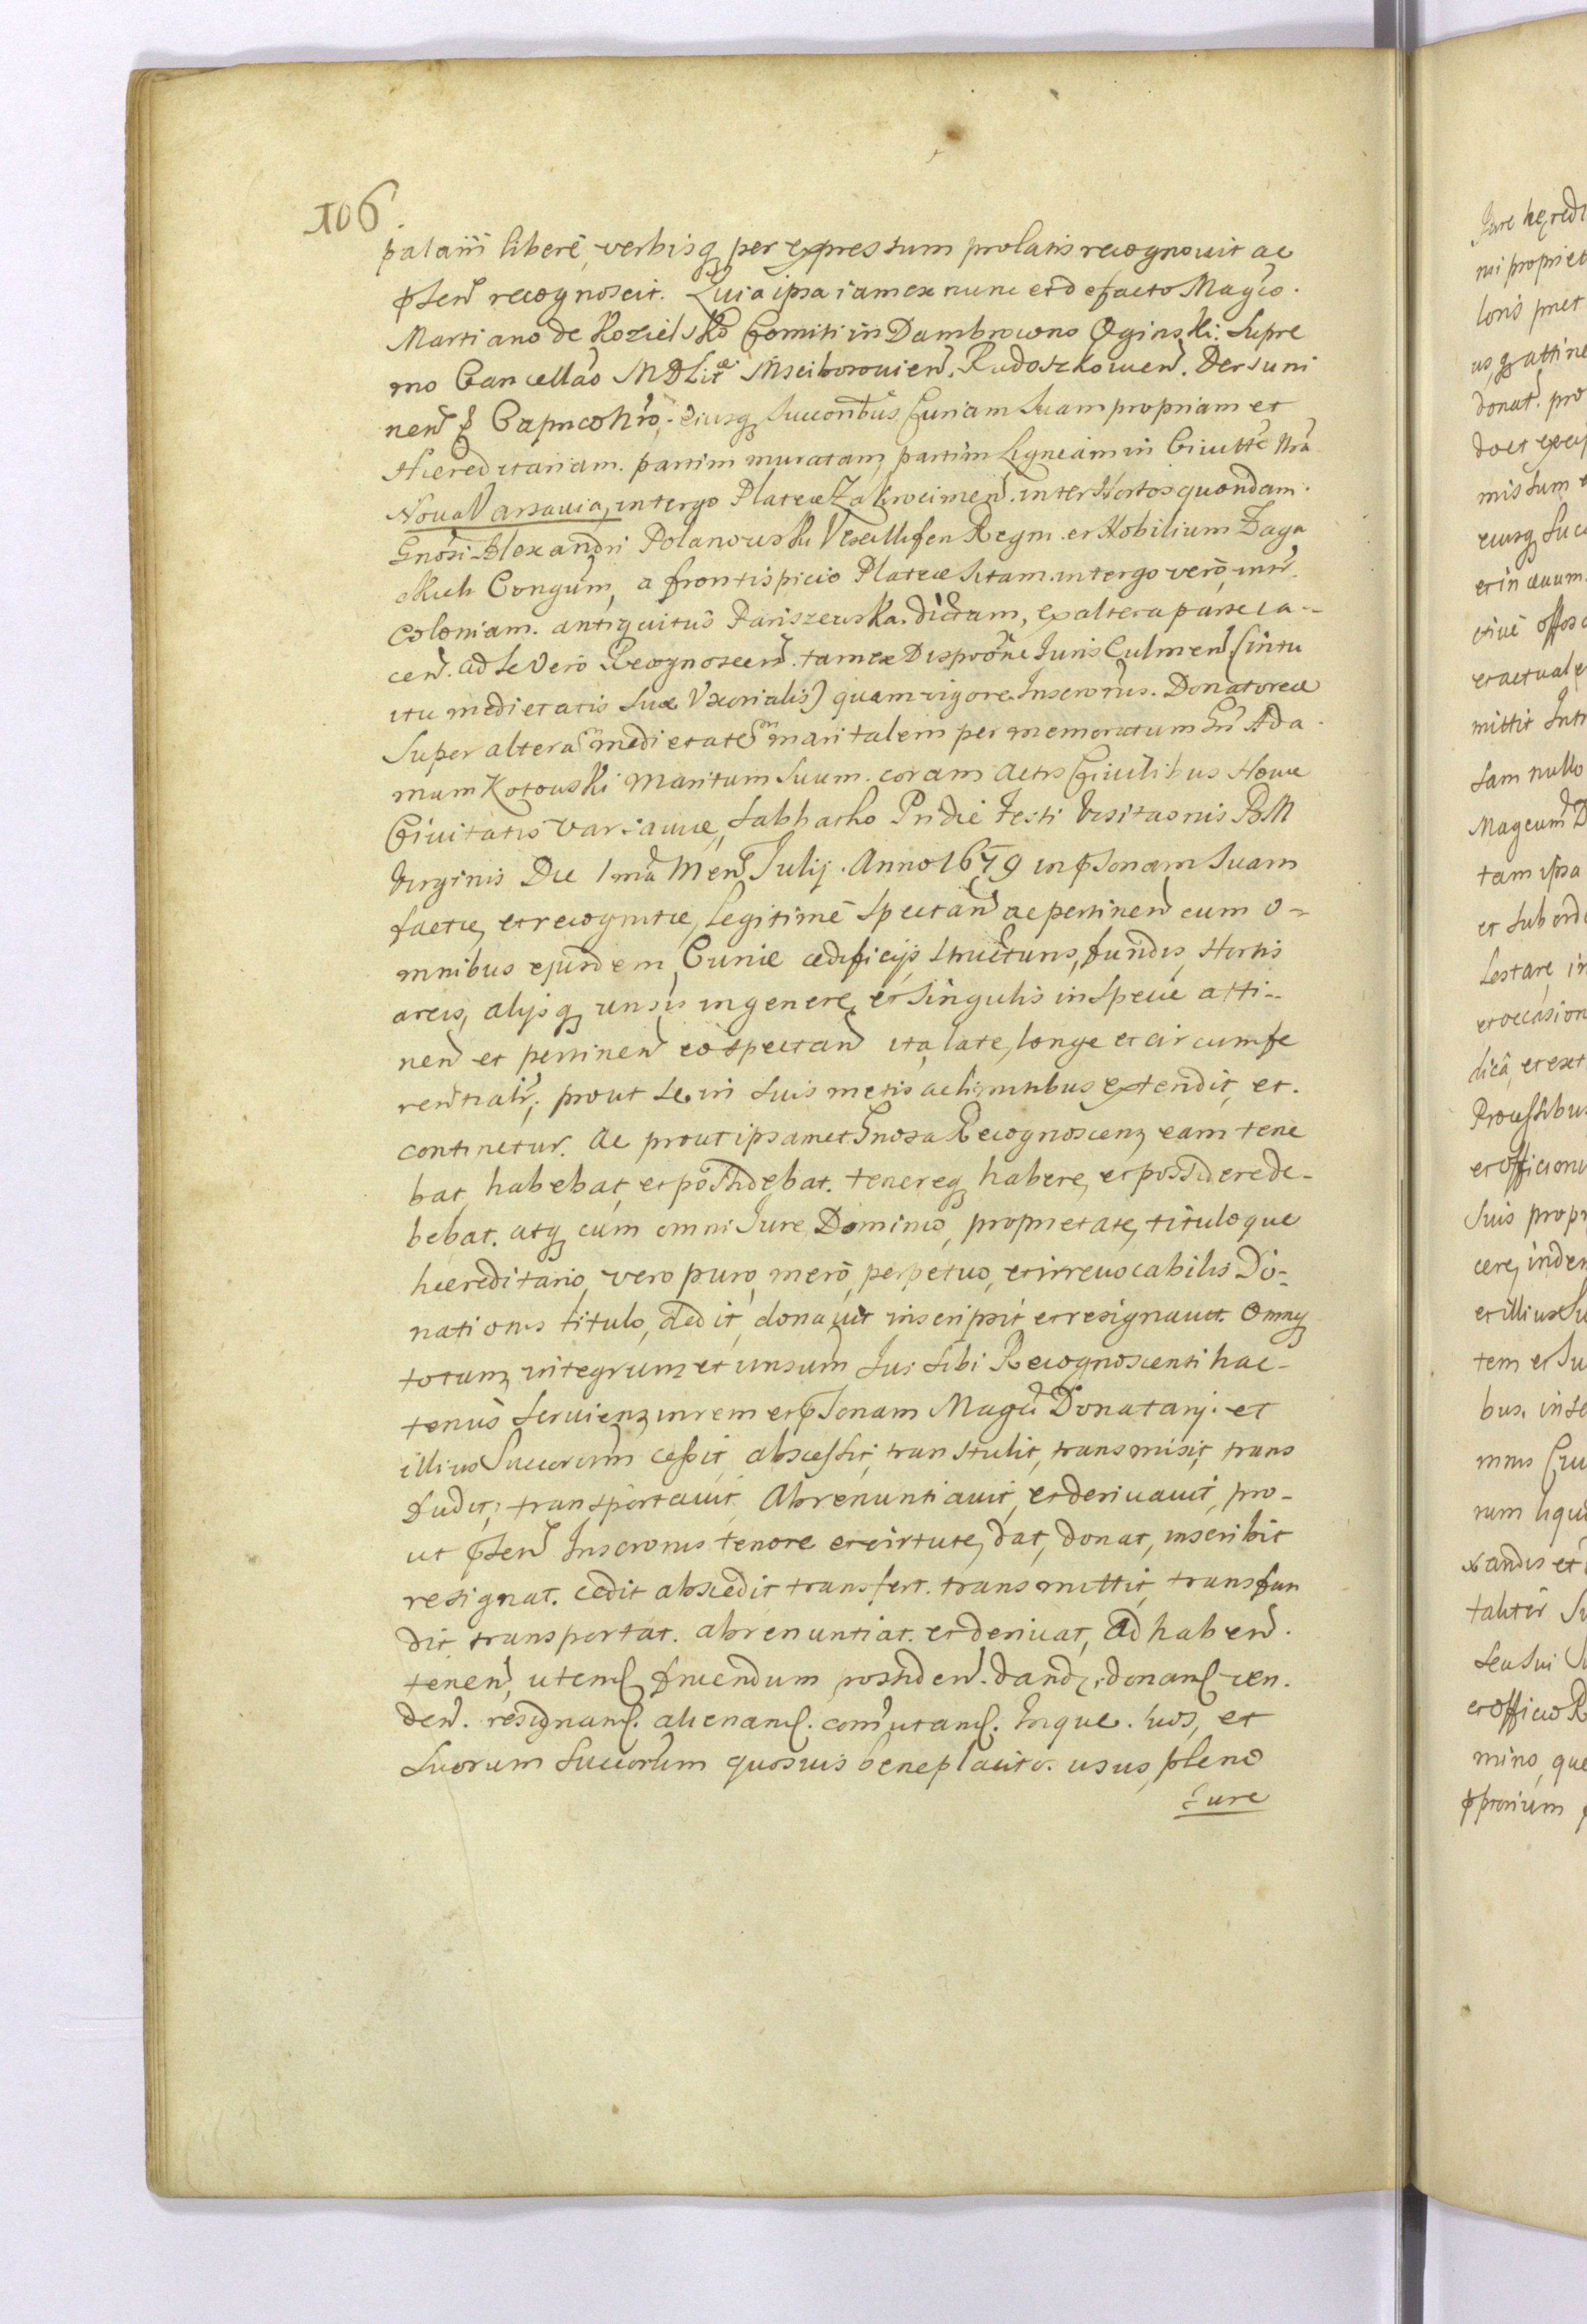 106.
palam liberè, verbisq per expressum prolatis recognovit ac
pħsen recognoscit. Quia ipsa iam ex nunc et de facto Magco.
Martiano de Kozielsko Comiti in Dambrowono Oginski. Supre
mo Cancellao MDLit Mscibovien. Radoszkowien. Dersuni
nen Capneo Nro. eiusq Succoribus Curiam Suam propriam et
Hiereditariam. partim muratam, partim Ligneam in Civitte Nra
Nova Varsavia, in tergo Plateæ Zakrocimen. inter Hortos quondam
Gnosi Alexandri Polanowski Vexilliferi Regni. et Nobilium
Congum, a frontispicio Plateæ sitam. in tergo verò
Coloniam. antiquitus Pariszewska. dictam, ex altera parte ia-
cen. ad se vero Recognoscen. tam ex Dispoone Iuris Culmen (intu
itu medietatis suæ Uxorialis) quam vigore Inscronis. Donatoreæ
Super altera medietate maritalem per memoratum Gn Ada
mum Kotowski Maritum suum. coram Actis Civilibus Novæ
Civitatis Varsaviæ, Sabbatho Pridie Festi Visitaonis BM
Virginis Die 1ma Men Julij. Anno 1679 in psonam Suam
factæ, et recognitæ, Legitimè Spectan ac pertinen cum o-
mnibus ejusdem Curiæ ædificijs, structuris, fundis, Hortis
areis, alijsq unsis in genere, et singulis in Specie atti-
nen et pertinen eo spectan ita, late, longe et circumfe
rentialr; prout se in suis metis ac limitibus extendit, et.
continetur. Ac prout ipsamet Gnosa Recognoscens eam tene
bat, habebat, et possidebat. tenereq habere, et possidere de-
bebat. atq cum omni Iure, Dominio, proprietate, tituloque
hæreditario, vero puro, merò, perpetuo, et irrevocabilis Do-
nationis titulo, dedit, donavit inscripsit et resignavit. Omneq
totum, integrum et unsum Ius sibi Recognoscenti hac-
tenùs serviens in rem et psonam Magci Donatarij. et
illius Succorum cessit, abscessit, transtulit, transmisit, trans
fudit, transportavit. Abrenuntiavit, et derivavit, pro-
ut psen Inscronis tenore et virtute, dat, donat, inscribit
resignat. cedit abscedit transfert. transmittit, transfun
dit transportat. abrenuntiat. et derivat, Ad haben.
tenen, uten fruendum possiden. dand. donan ven.
den. resignan. alienan. comutan. Inque. suos, et
suorum Succorum quosvis beneplacito. usus, pleno
Iure
Iure heredi
ni propriet
loris
usq attine
donat. pro
missum
eiusq Succ
et in ævum
ctivè
et actuale
mittit Intr
Sam nullo
Magcum D
tam ipsa
et sub ord
et occasion
dicâ, et ext
Processibus
et officion
Suis propr
cere, inden
et illius Su
tem et Su
bus. inse
rum liqui
xandis et
taliter Su
seu sui
et officio R
mino, que